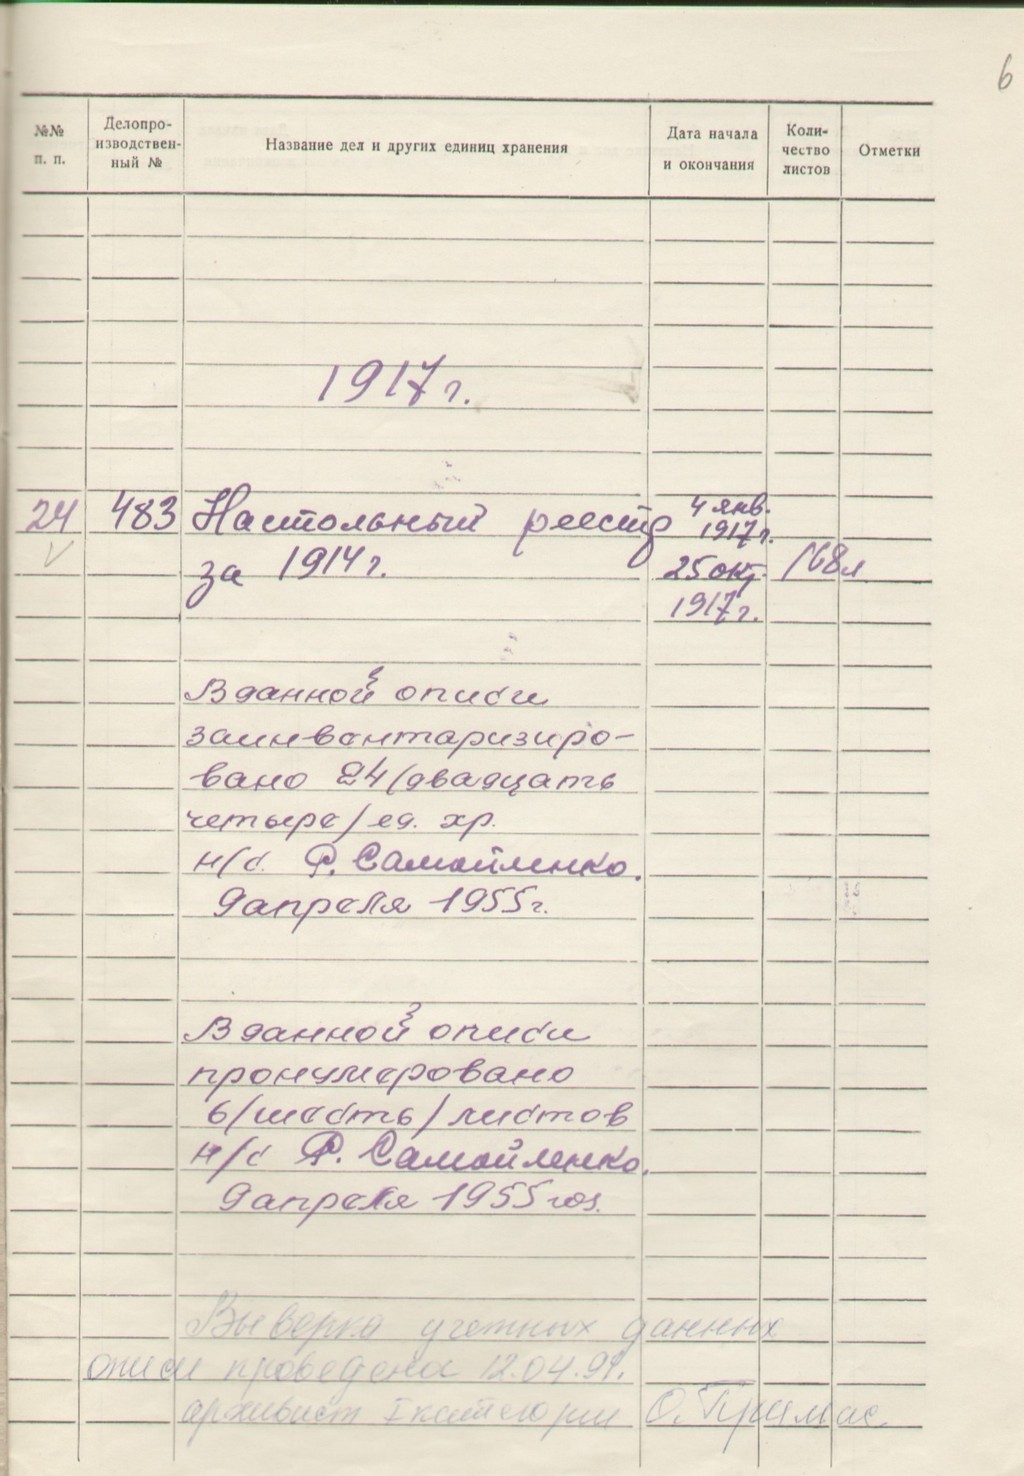 6
№№ п. п.
Делопро-
изводствен-
ный №
Название дел и других единиц хранения
Дата начала
и окончания
Коли-
чество
листов
Отметки
1917 г.
24 483 Настольный реестр 4 янв. 1917 г.
за 1914 г. 25 окт. 168 л
1917 г.
В данной описи
заинвентаризиро-
вано 24 /двадцать
четыре/ ед. хр.
н/с. Р. Самойленко.
9 апреля 1955 г.
В данной описи
пронумеровано
6 /шесть/ листов
н/с Р. Самойленко.
9 апреля 1955 год.
Выверка учетных данных
описи проведена 12.04.91.
архивист I категории О. Примас